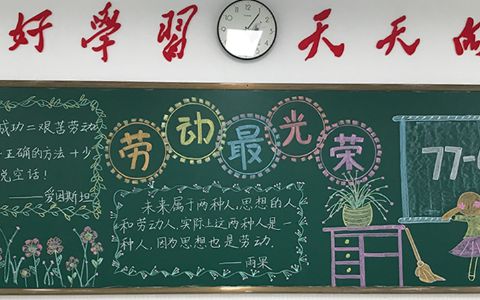 好學習 天天向
劳动最光荣
成功=艰苦劳动
+正确的方法+少
说空话！
——爱因斯坦
未来属于两种人，思想的人
和劳动人，实际上这两种人是一
种人，因为思想也是劳动。
——雨果
77-